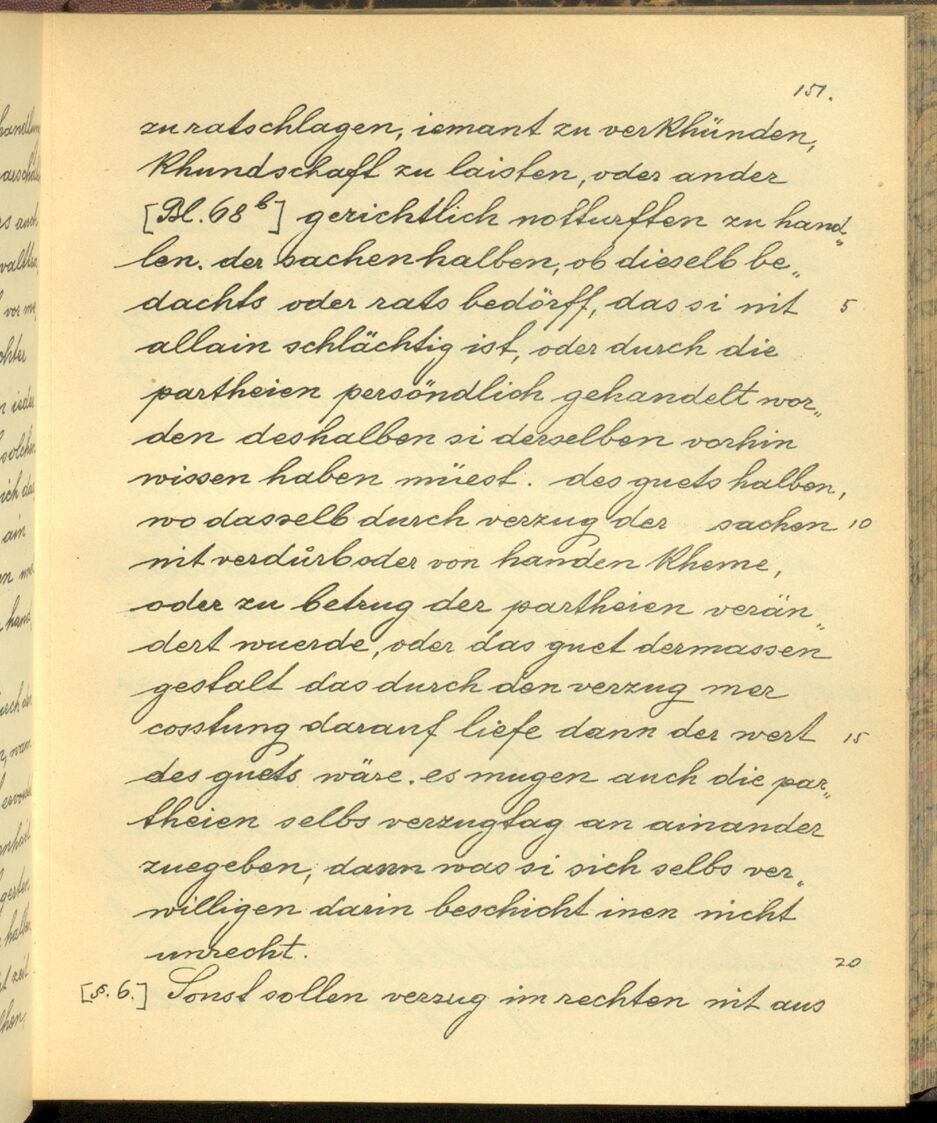 151.
zu ratschlagen, iemant zu verkhünden,
khundschaft zu laisten, oder ander
[Bl. 68 b] gerichtlich notturfften zu hand„
len. der sachen halben, ob dieselb be„
dachts oder rats bedörff, das si nit 5
allain schlächtig ist, oder durch die
partheien persöndlich gehandelt wor„
den deshalben si derselben vorhin
wissen haben müest. des guets halben,
wo dasselb durch verzug der sachen 10
nit verdürb oder von handen kheme,
oder zu betrug der partheien verän„
dert wuerde, oder das guet dermassen
gestalt das durch den verzug mer
cosstung darauf liefe dann der wert 15
des guets wäre. es mugen auch die par„
theien selbs verzugtag an ainander
zuegeben, dann was si sich selbs ver„
willigen darin beschicht inen nicht
unrecht. 20
[§. 6.] Sonst sollen verzug im rechten nit aus